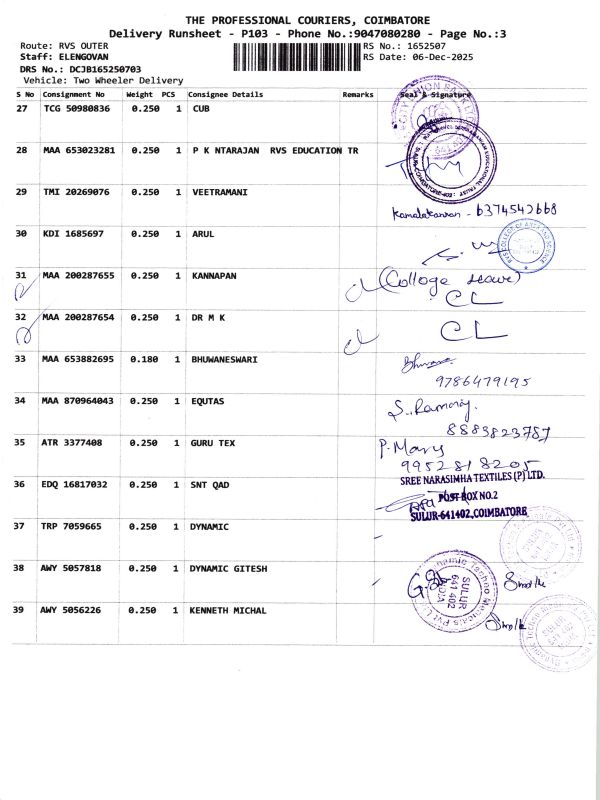 THE PROFESSIONAL COURIERS, COIMBATORE
Delivery Runsheet - P103 - Phone No.:9047080280 - Page No.:3
Route: RVS OUTER
RS No.: 1652507
Staff: ELENGOVAN
RS Date: 06-Dec-2025
DRS No.: DCJB165250703
Vehicle: Two Wheeler Delivery
S No Consignment No Weight PCS Consignee Details Remarks Seal & Signature
27 TCG 50980836 0.250 1 CUB
28 MAA 653023281 0.250 1 P K NTARAJAN RVS EDUCATION TR
29 TMI 20269076 0.250 1 VEETRAMANI
Kamalakannan - 6374542668
30 KDI 1685697 0.250 1 ARUL
31 MAA 200287655 0.250 1 KANNAPAN
(College Leave)
CL
32 MAA 200287654 0.250 1 DR M K
CL
33 MAA 653882695 0.180 1 BHUWANESWARI
9786479195
34 MAA 870964043 0.250 1 EQUTAS
S. Ramoraj.
8883823787
35 ATR 3377408 0.250 1 GURU TEX
P. Mary
9952818205
SREE NARASIMHA TEXTILES (P) LTD.
36 EDQ 16817032 0.250 1 SNT QAD
POST BOX NO.2
SULUR-641402, COIMBATORE
37 TRP 7059665 0.250 1 DYNAMIC
38 AWY 5057818 0.250 1 DYNAMIC GITESH
SULUR
641 402
39 AWY 5056226 0.250 1 KENNETH MICHAL